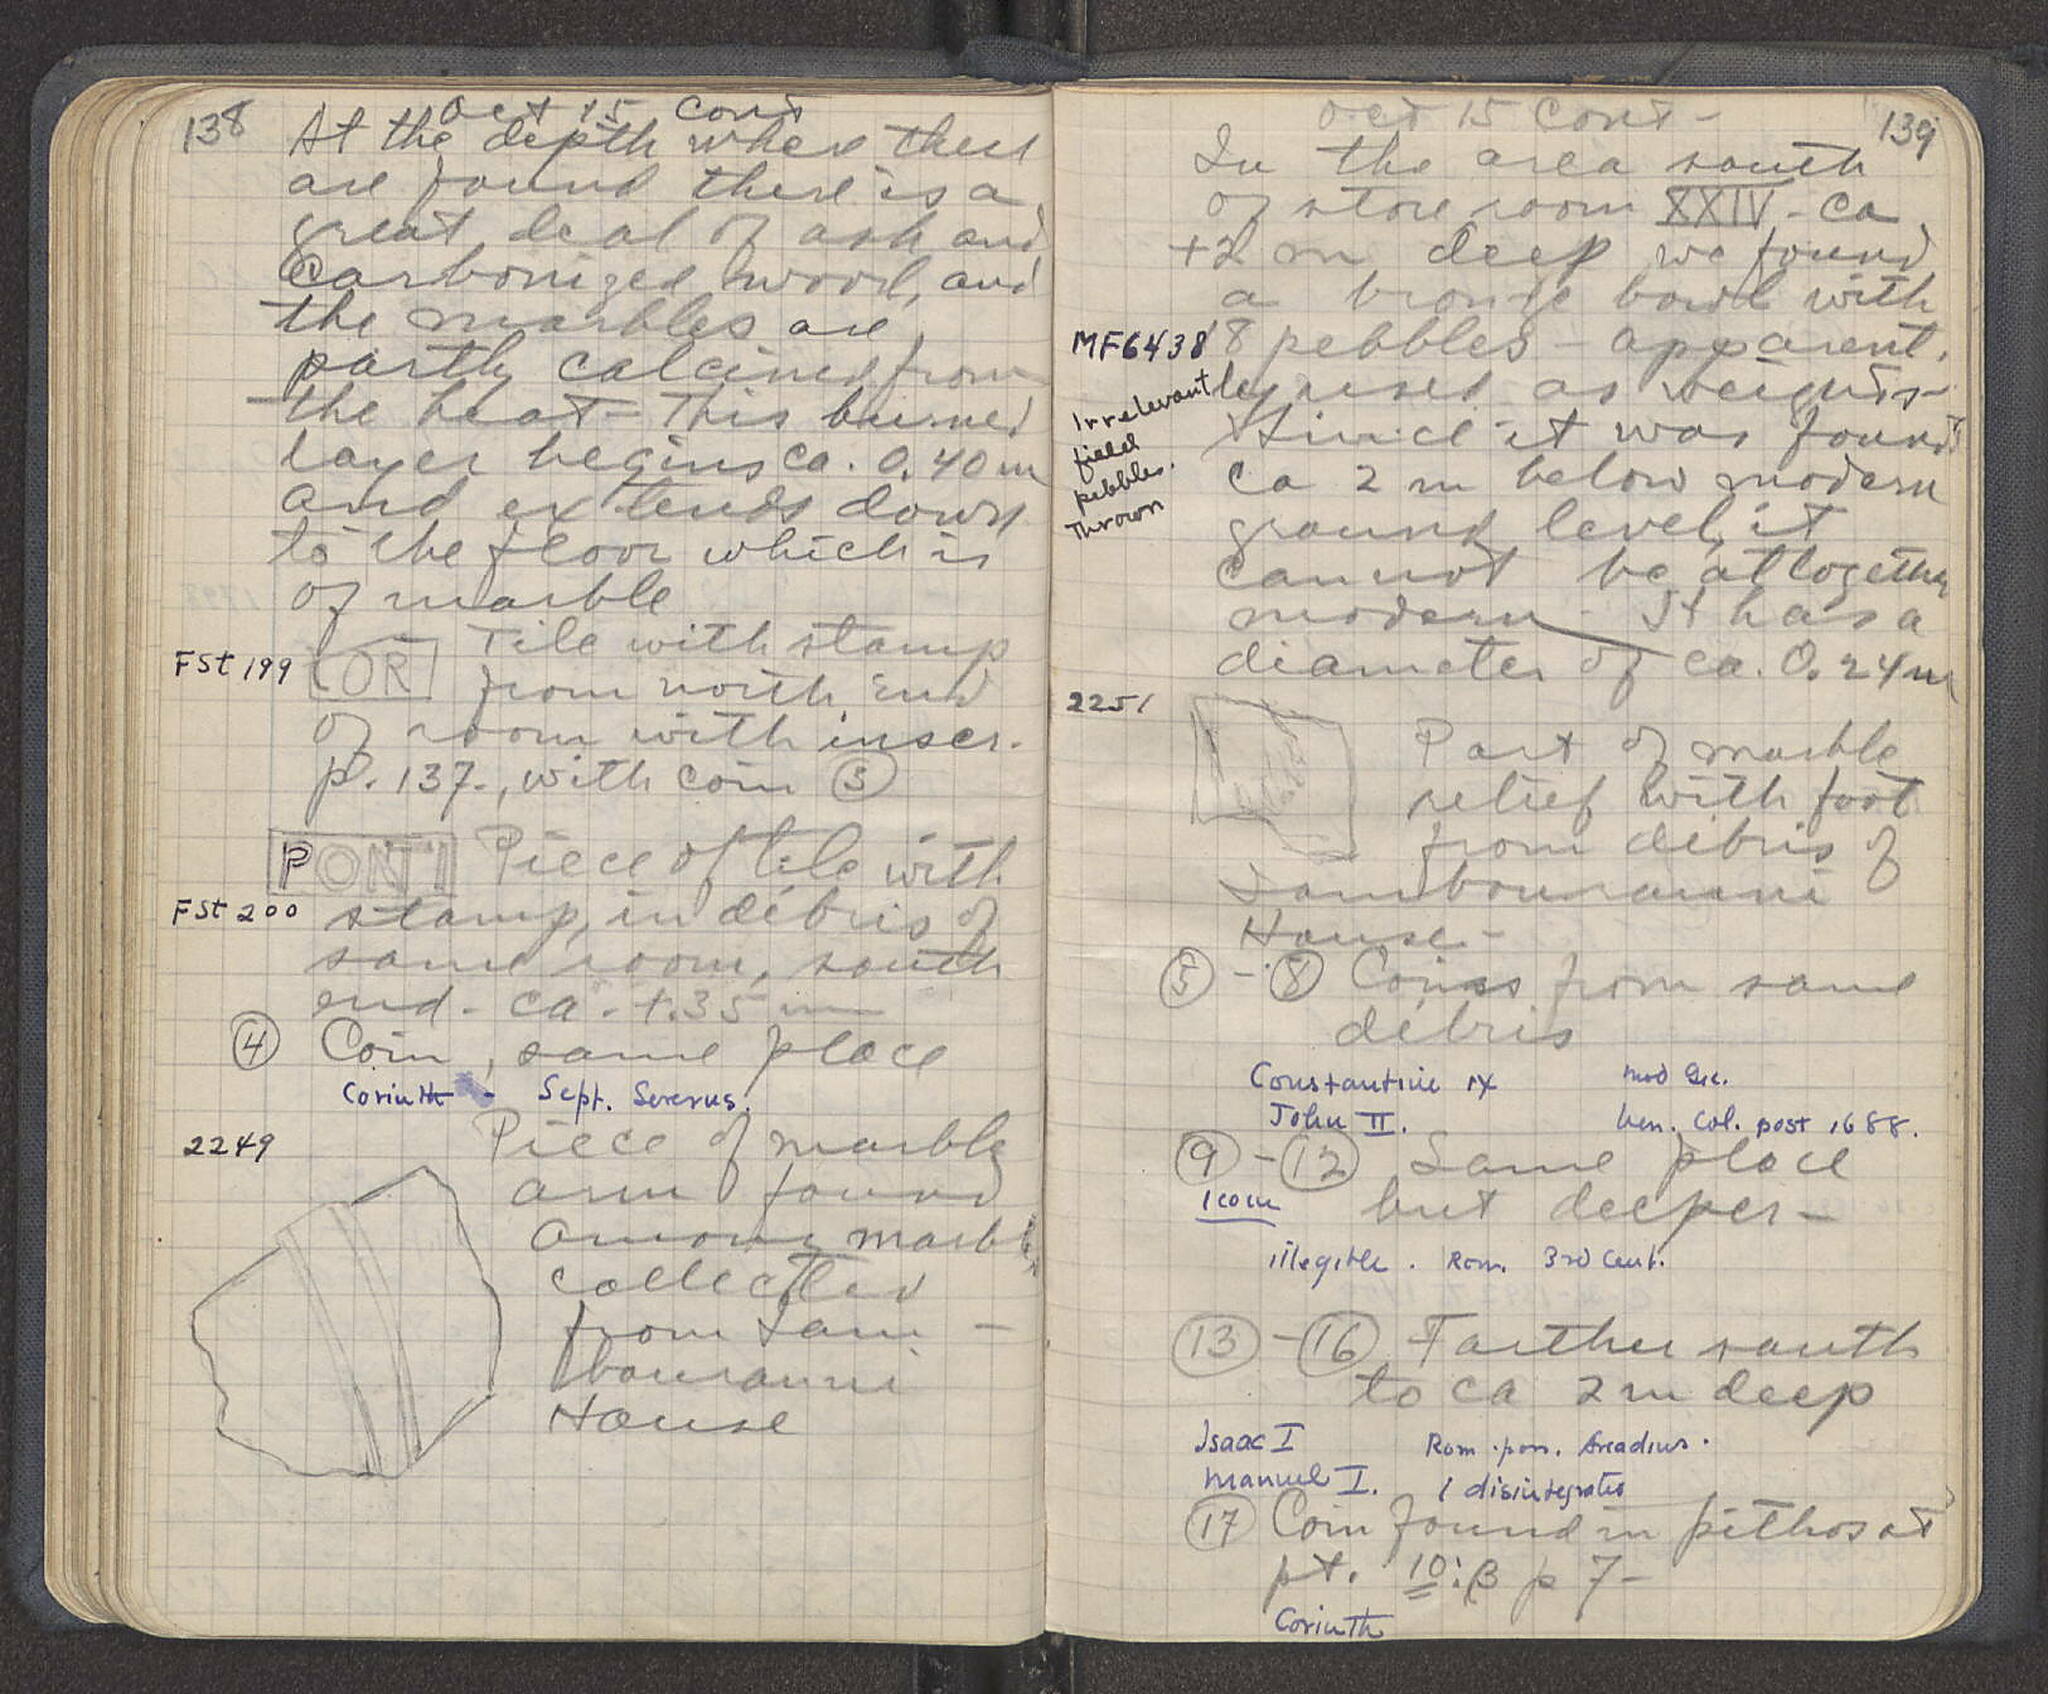 138
Oct 15 Cont
At the depth where these
are found there is a
great deal of ash and
carbonized wood, and
the marbles are
partly calcined from
the heat - This burned
layer begins ca. 0.40 m
and extends down
to the floor which is
of marble
FSt 199
OR Tile with stamp
from north end
of room with inscr.
p. 137-, with coin ③
PONTI Piece of tile with
FSt 200 stamp, in débris of
same room, south
end - ca. +.35 m
④ Coin, same place
Corinth - Sept. Severus.
2249 Piece of marble
arm found
among marble
collected
from Tam-
bouranni
House
139
Oct 15 Cont -
In the area south
of store room XXIV - ca
+2 m deep we found
a bronze bowl with
MF6438 8 pebbles - apparent.
ly used as weights -
Irrelevant
field
pebbles.
Thrown
Since it was found
ca 2 m below modern
ground level, it
cannot be altogether
modern - It has a
diameter of ca. 0.24 m
2251
Part of marble
relief with foot
from débris of
Tambouranni
House -
⑤ - ⑧ Coins from same
débris
Constantine IX mod Gre.
John II. Ven. Col. post 1688.
⑨ - ⑫ Same place
1 coin but deeper -
illegible. Rom. 3rd Cent.
⑬ - ⑯ Farther south
to ca 2 m deep
Isaac I Rom. Arcadius.
Manuel I. 1 disintegrated
⑰ Coin found in pithos at
pt. 10:β p 7 -
Corinth